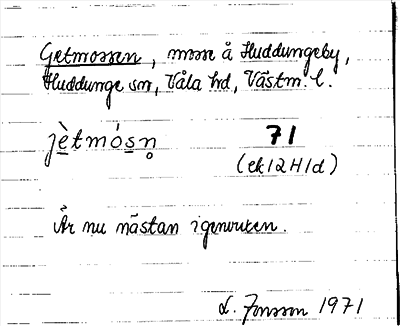 Getmossen, mosse å Huddungeby,
Huddunge sn, Våla hd, Västm. l.
jètmósn̥ 71
(ek 12 H 1 d)
Är nu nästan igenvuxen.
L. Jonsson 1971